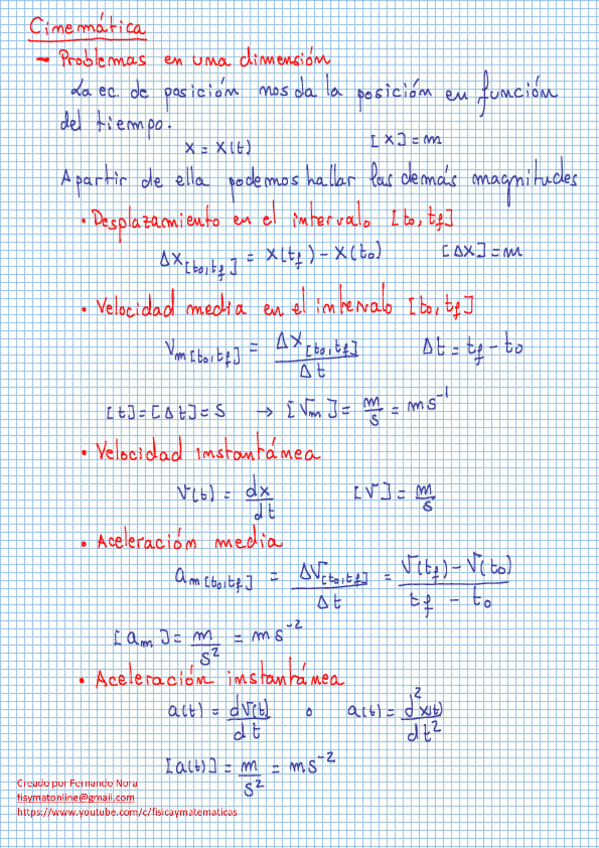 Cinemática
- Problemas en una dimensión
La ec. de posición nos da la posición en función
del tiempo.
x = x(t) [x] = m
A partir de ella podemos hallar las demás magnitudes
• Desplazamiento en el intervalo [t₀, t_f]
Δx_[t₀,t_f] = x(t_f) - x(t₀) [Δx] = m
• Velocidad media en el intervalo [t₀, t_f]
v_m[t₀,t_f] = Δx_[t₀,t_f] / Δt Δt = t_f - t₀
[t] = [Δt] = s → [v_m] = m/s = ms⁻¹
• Velocidad instantánea
v(t) = dx/dt [v] = m/s
• Aceleración media
a_m[t₀,t_f] = Δv_[t₀,t_f] / Δt = (v(t_f) - v(t₀)) / (t_f - t₀)
[a_m] = m/s² = ms⁻²
• Aceleración instantánea
a(t) = dv(t)/dt o a(t) = d²x(t)/dt²
[a(t)] = m/s² = ms⁻²
Creado por Fernando Nora
fisymatonline@gmail.com
https://www.youtube.com/c/fisicaymatematicas